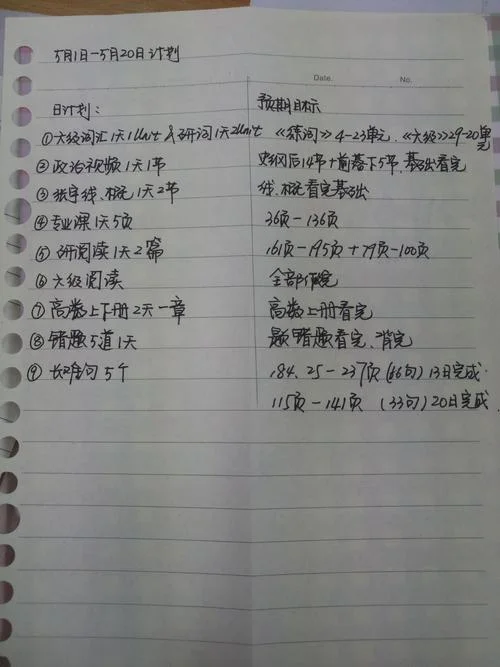 5月1日-5月20日计划
Date. No.
日计划: 预期目标
①六级词汇1天1Unit & 研词1天2Unit 《练词》4-23单元.《六级》29-20单元
②政治视频1天1节 史纲后14节+前落下5节,基础看完
③张宇线、概1天2节 线、概看完基础
④专业课1天5页 36页-136页
⑤研阅读1天2篇 161页-195页+79页-100页
⑥六级阅读 全部做完
⑦高数上下册2天一章 高数上册看完
⑧错题5道1天 错题看完、背完
⑨长难句5个 184、25-237页(66句)13日完成.
115页-141页 (33句)20日完成.